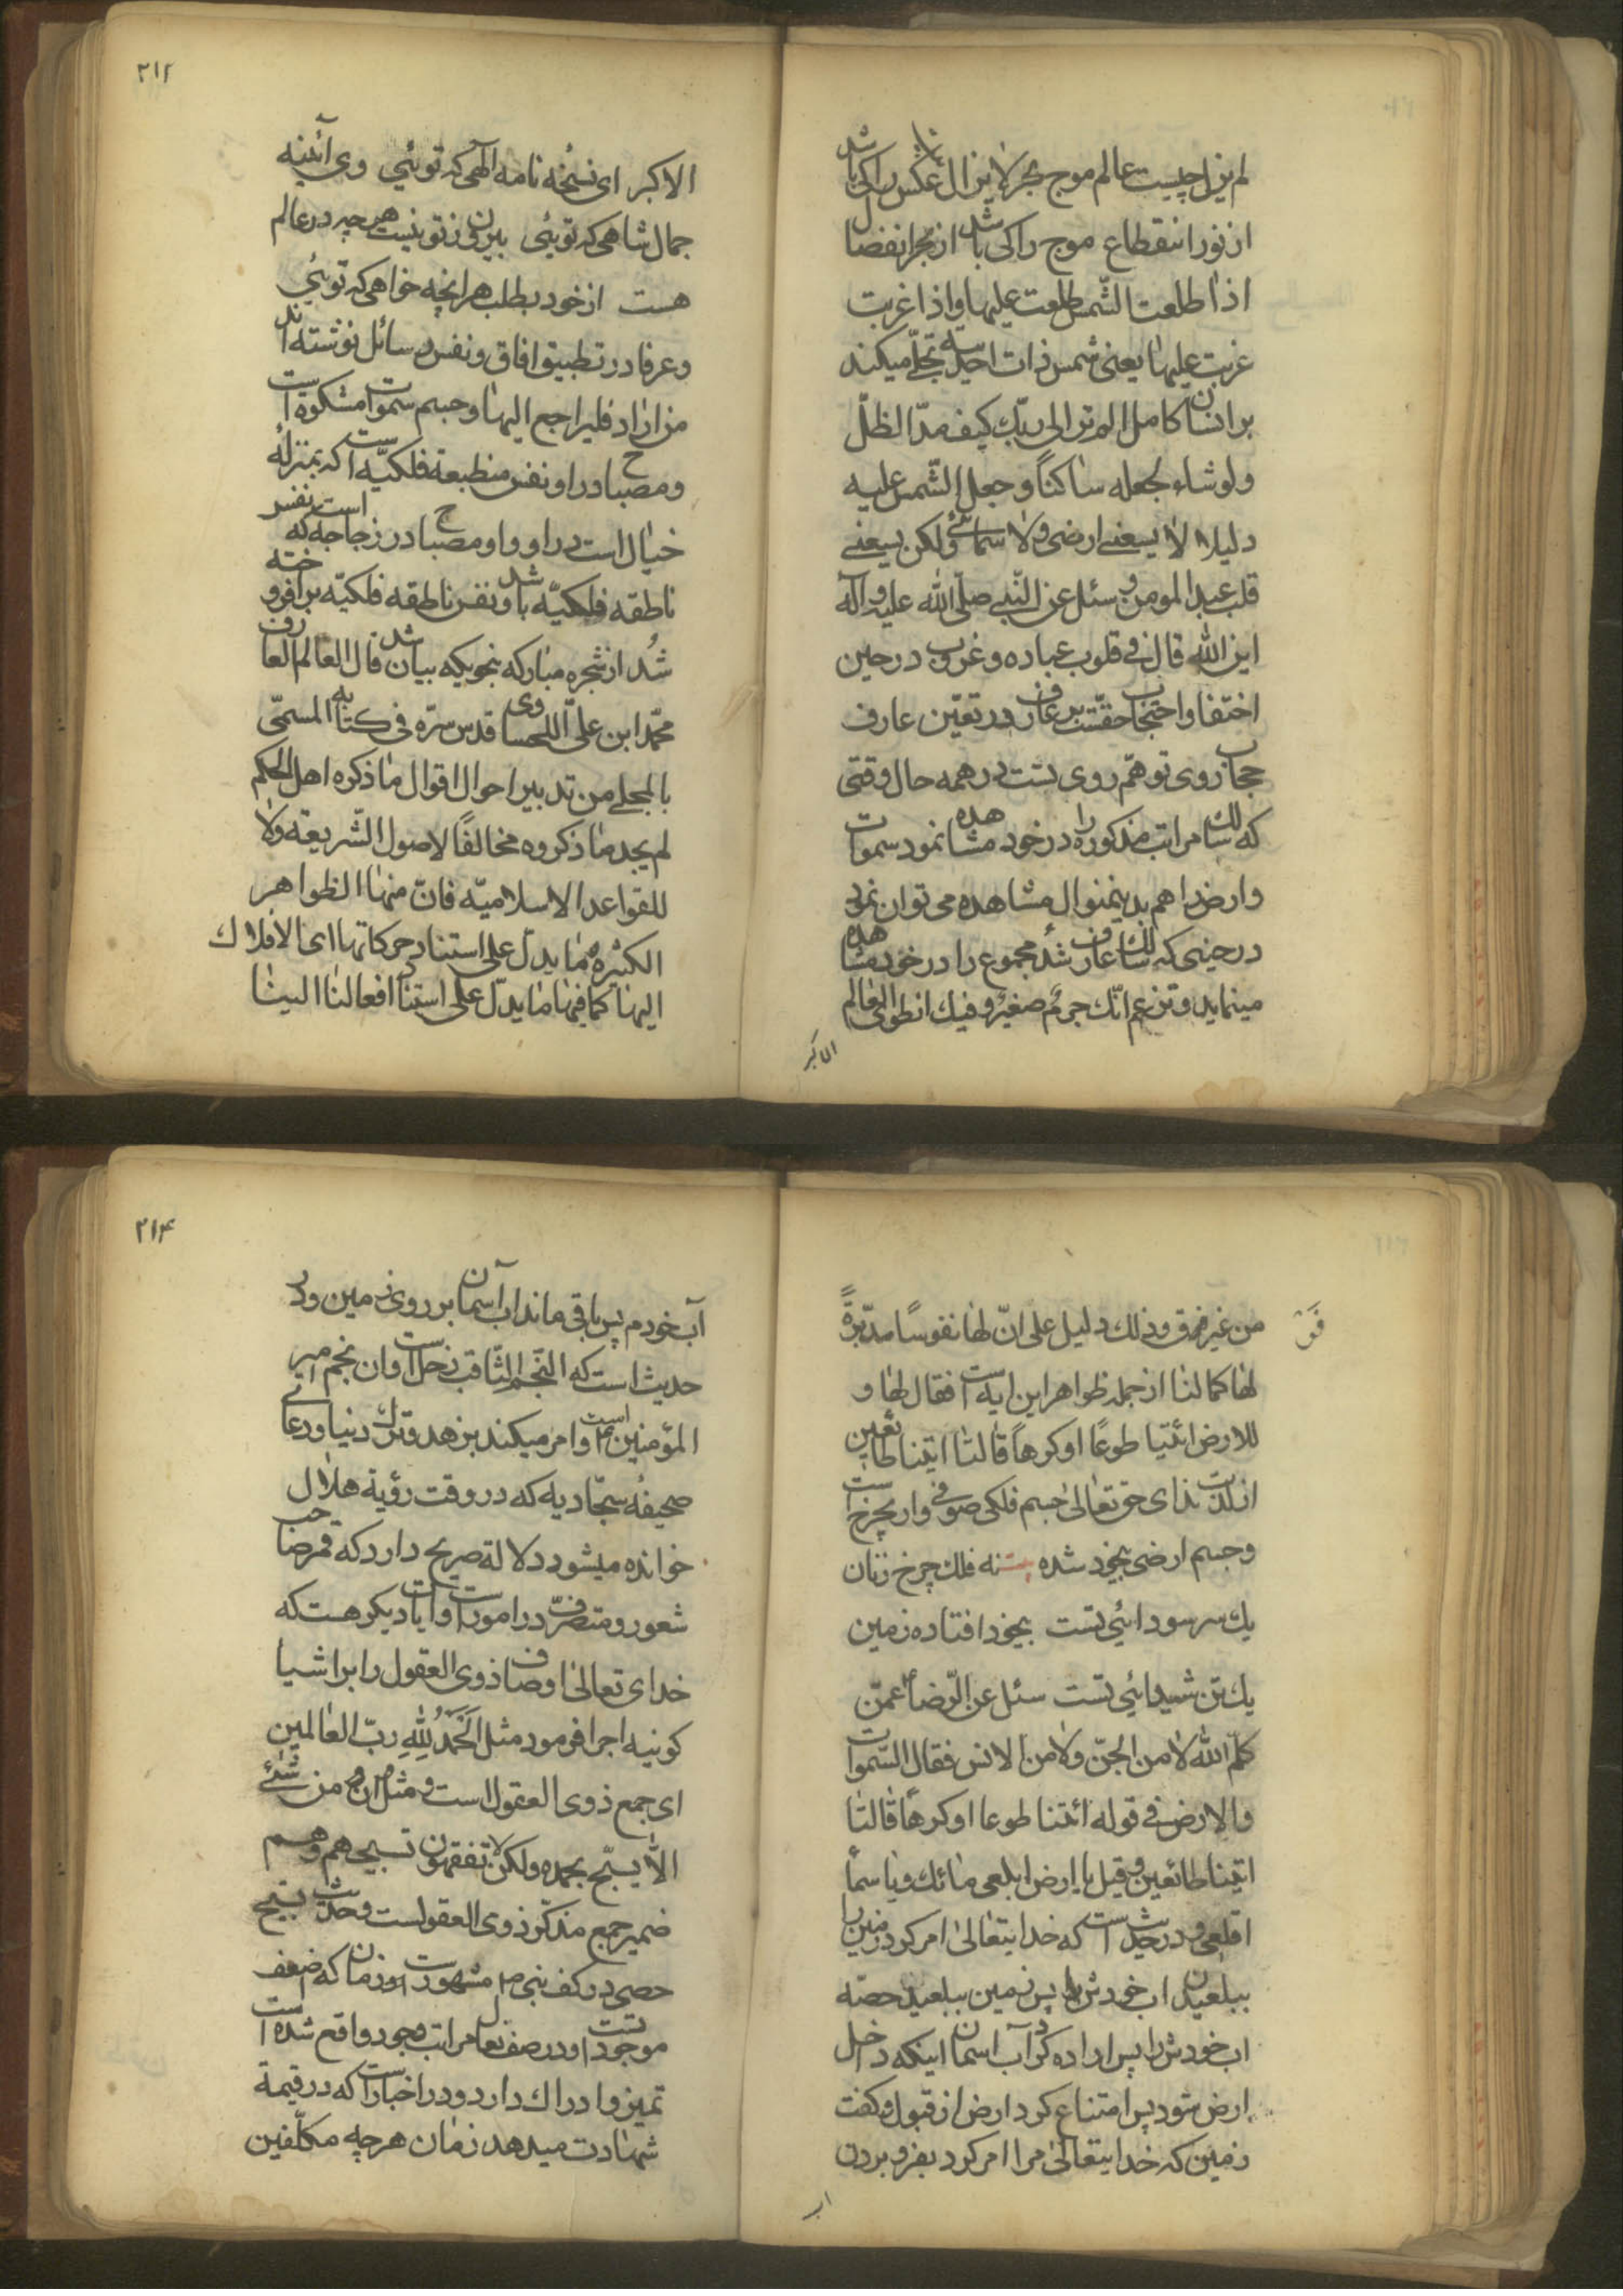 لم یزل چیست عالم موج بحر لا یزال عکس را کی باشد
از نور انقطاع موج را کی باشد از بحر انفصال
اذا طلعت الشّمس طلعت علیها و اذا غربت
غربت علیها یعنی شمس ذات احدیّه تجلّی میکند
بر انسان کامل الم تر الی ربّك کیف مدّ الظلّ
ولو شاء لجعله ساکناً و جعل الشّمس علیه
دلیلا لا یسعنی ارضی ولا سمائی ولکن یسعنی
قلب عبد المومن و سئل عن النّبی صلّی الله علیه و آله
این الله قال فی قلوب عباده و غروب در حین
اختفا و احتجاب حقّست بر عارف و در تعیّن عارف
حجاب روی تو هم روی تست در همه حال وقتی
که سالك مراتب مذکوره را در خود مشاهده نمود سموات
و ارض را هم بدینمنوال مشاهده می توان نمود
در حینی که سالك عارف شد مجموع را در خود مشاهده
مینماید و تزعم انّك جرم صغیر و فیك انطوی العالم
الاکبر
۲۱۲
الاکبر ای نسخهٔ نامه الهی که توئی وی آئینه
جمال شاهی که توئی بیرون ز تو نیست هرچه در عالم
هست از خود بطلب هر انچه خواهی که توئی
و عرفا در تطبیق افاق و نفس رسائل نوشته اند
من اراد فلیراجع الیها و جسم سموات مشکوة است
و مصباح در او نفس منطبعة فلکیّه است که بمنزلهٔ
خیال است در او و او مصباح در زجاجه که است نفس
ناطقه فلکیّه باشد و نفس ناطقه فلکیّه بر افروخته
شُد از شجره مبارکه بنحویکه بیان شد قال العالم العارف
محمّد ابن علیّ اللحساوی قدس سرّه فی کتابه المسمّی
بالمجلی من تدبیر احوال اقوال ما ذکره اهل الحکم
لم یجد ما ذکروه مخالفًا لاصول الشّریعة ولا
للقواعد الاسلامیّه فانّ منها الظواهر
الکثیرة ما یدلّ علی استناد حرکاتها ای الافلاك
الیها کما فیها ما یدلّ علی استناد افعالنا الینا
فَقَ
من غیر فرق و ذلك دلیل علی انّ لها نفوسًا مدبّرةً
لها کما لنا از جمله ظواهر این ایه است فقال لها و
للارض ائتیا طوعًا او کرهاً قالتا اتینا طائعین
از لذّت ندای حق تعالی جسم فلکی صوفی وار بچرخ است
و جسم ارضی بیخود شده نه فلك چرخ زنان
یك سر سودائی تست بیخود افتاده زمین
یك تن شیدائی تست سئل عن الرّضا عمّن
کلّم الله لا من الجنّ ولا من الانس فقال السّموات
والارض فی قوله ائتنا طوعا او کرهاً قالتا
اتینا طائعین و قیل یا ارض ابلعی مائك و یا سماً
اقلعی و در حدیث است که خدایتعالی امر کرد زمین را
ببلعیدن اب خودش را پس زمین ببلعید حصّه
اب خودش را پس اراده کرد آب اسمان اینکه داخل
ارض شود پس امتناع کرد ارض از قبول و کفت
زمین که خدایتعالی مرا امر کرد بفرو بردن
اب
۲۱۴
آب خودم پس باقی ماند اب آسمان بر روی زمین و در
حدیث است که النّجم الثّاقب زحل است و ان نجم امیر
المؤمنین است و امر میکند بزهد و ترك دنیا و دعای
صحیفهٔ سجّادیه که در وقت رؤیة هلال
خوانده میشود دلالة صریح دارد که قمر صاحب
شعور و متصرّف در امورات است و آیات دیکر هست که
خدای تعالی اوصاف ذوی العقول را بر اشیا
کونیه اجرا فرمود مثل الحَمْدُ لِلّهِ ربّ العالمین
ای جمع ذوی العقول است و مثل ان من شئی
الّا یسبّح بحمده ولکن لا تفقهون تسبیحهم و هم
ضمیر جمع مذکّر ذوی العقولست و حدیث تسبیح
حصی در کف نبی مشهور است و زمان که اضعف
موجودات است و در صف نعال مراتب وجود واقع شده است
تمیز و ادراك دارد و در اخبار است که در قیمة
شهادت میدهد زمان هرچه مکلّفین